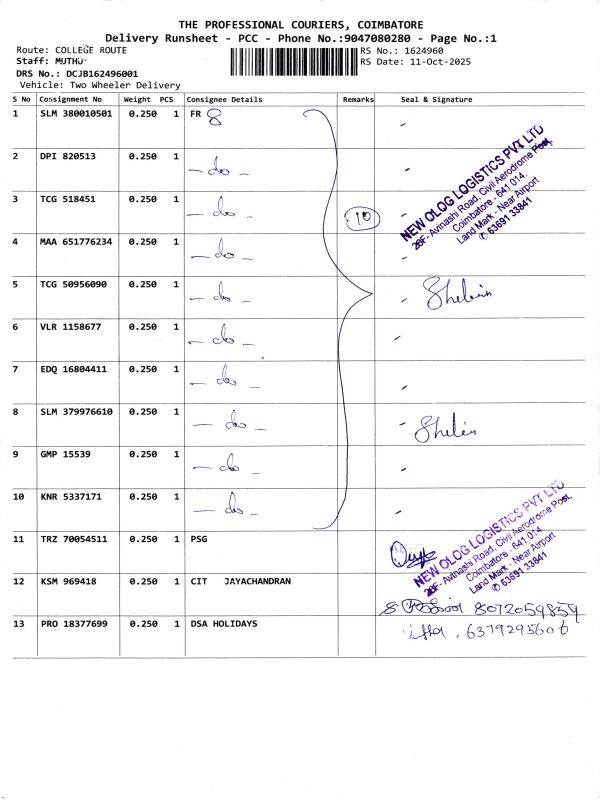 THE PROFESSIONAL COURIERS, COIMBATORE
Delivery Runsheet - PCC - Phone No.:9047080280 - Page No.:1
Route: COLLEGE ROUTE
RS No.: 1624960
Staff: MUTHU
RS Date: 11-Oct-2025
DRS No.: DCJB162496001
Vehicle: Two Wheeler Delivery
S No Consignment No Weight PCS Consignee Details Remarks Seal & Signature
1 SLM 380010501 0.250 1 FR 8
2 DPI 820513 0.250 1 - do -
3 TCG 518451 0.250 1 - do - 10
4 MAA 651776234 0.250 1 - do -
NEW OLOG LOGISTICS PVT LTD
28F- Avinashi Road, Civil Aerodrome Post,
Coimbatore - 641 014.
Land Mark - Near Airport
✆ 63691 33841
5 TCG 50956090 0.250 1 - do - Shebin
6 VLR 1158677 0.250 1 - do -
7 EDQ 16804411 0.250 1 - do -
8 SLM 379976610 0.250 1 - do - Shebin
9 GMP 15539 0.250 1 - do -
10 KNR 5337171 0.250 1 - do -
11 TRZ 70054511 0.250 1 PSG
NEW OLOG LOGISTICS PVT LTD
28F- Avinashi Road, Civil Aerodrome Post,
Coimbatore - 641 014
Land Mark - Near Airport
✆ 63691 33841
12 KSM 969418 0.250 1 CIT JAYACHANDRAN
8072059859
13 PRO 18377699 0.250 1 DSA HOLIDAYS 6379295606